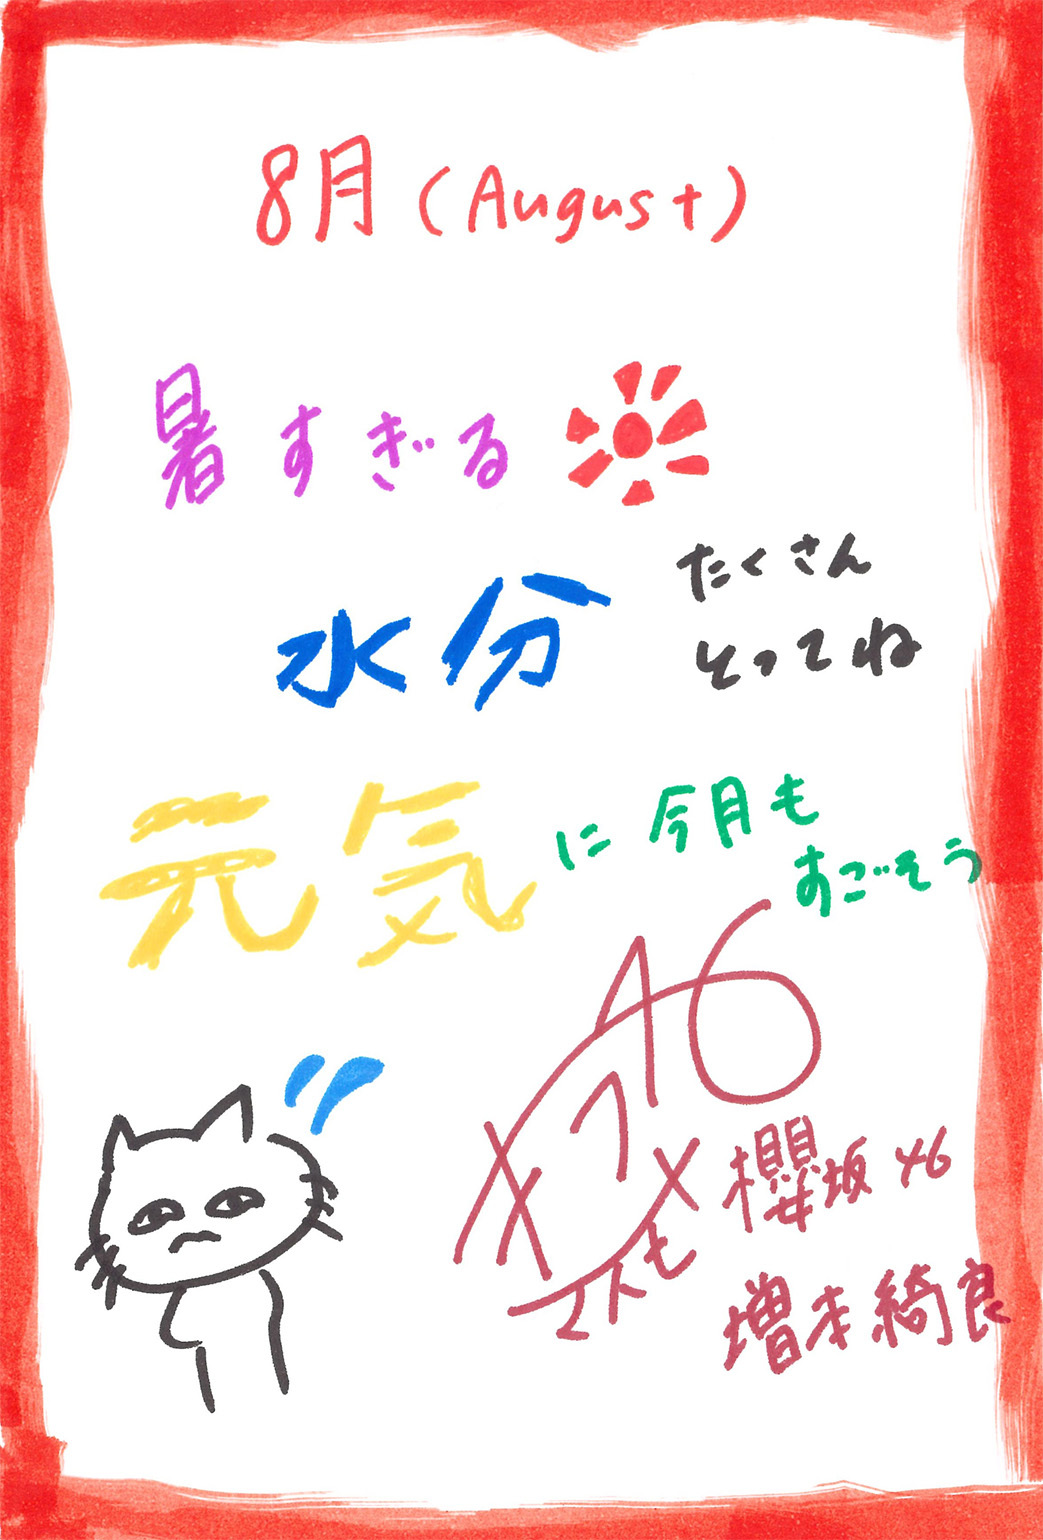 8月(August)
暑すぎる
水分たくさん
とってね
元気に今月も
すごそう
46
櫻坂46
増本綺良